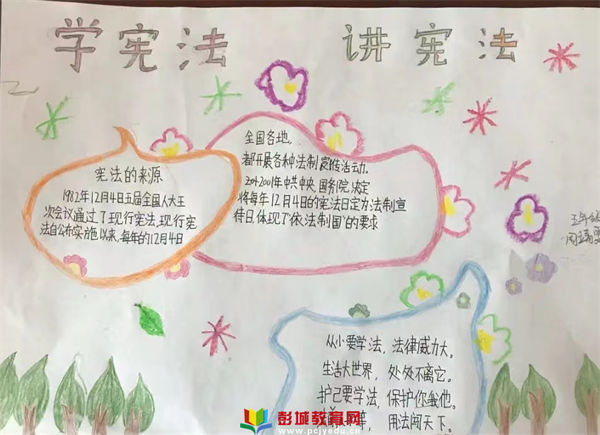 学宪法 讲宪法
宪法的来源
1982年12月4日五届全国人大五
次会议通过了现行宪法,现行宪
法自公布实施以来,每年的12月4日
全国各地,
都开展各种法制宣传活动.
2001年中共中央、国务院决定
将每年12月4日的宪法日定为法制宣
传日,体现了依法制国的要求
从小要学法,法律威力大。
生活大世界,处处不离它。
护己要学法,保护你我他。
用法闯天下。
五年级
彭城教育网
www.pcjyedu.cn